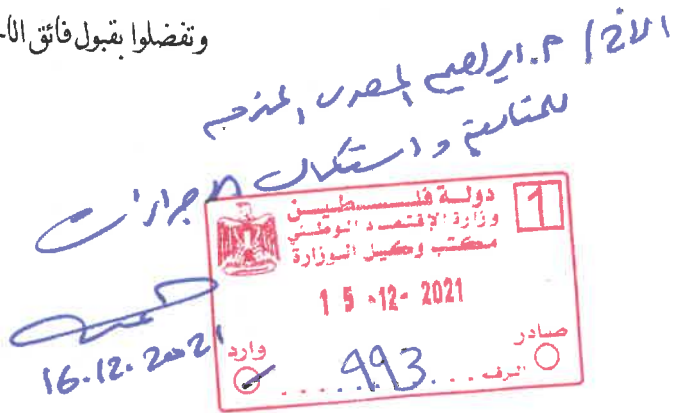 وتفضلوا بقبول فائق الا
الاخ / م. ابراهيم المحترم
للمتابعة و استكمال الاجراءات
دولة فلسطين
وزارة الإقتصاد الوطني
مكتب وكيل الوزارة
1
15-12-2021
صادر
وارد
الرقم ... 993 ...
16.12.2021